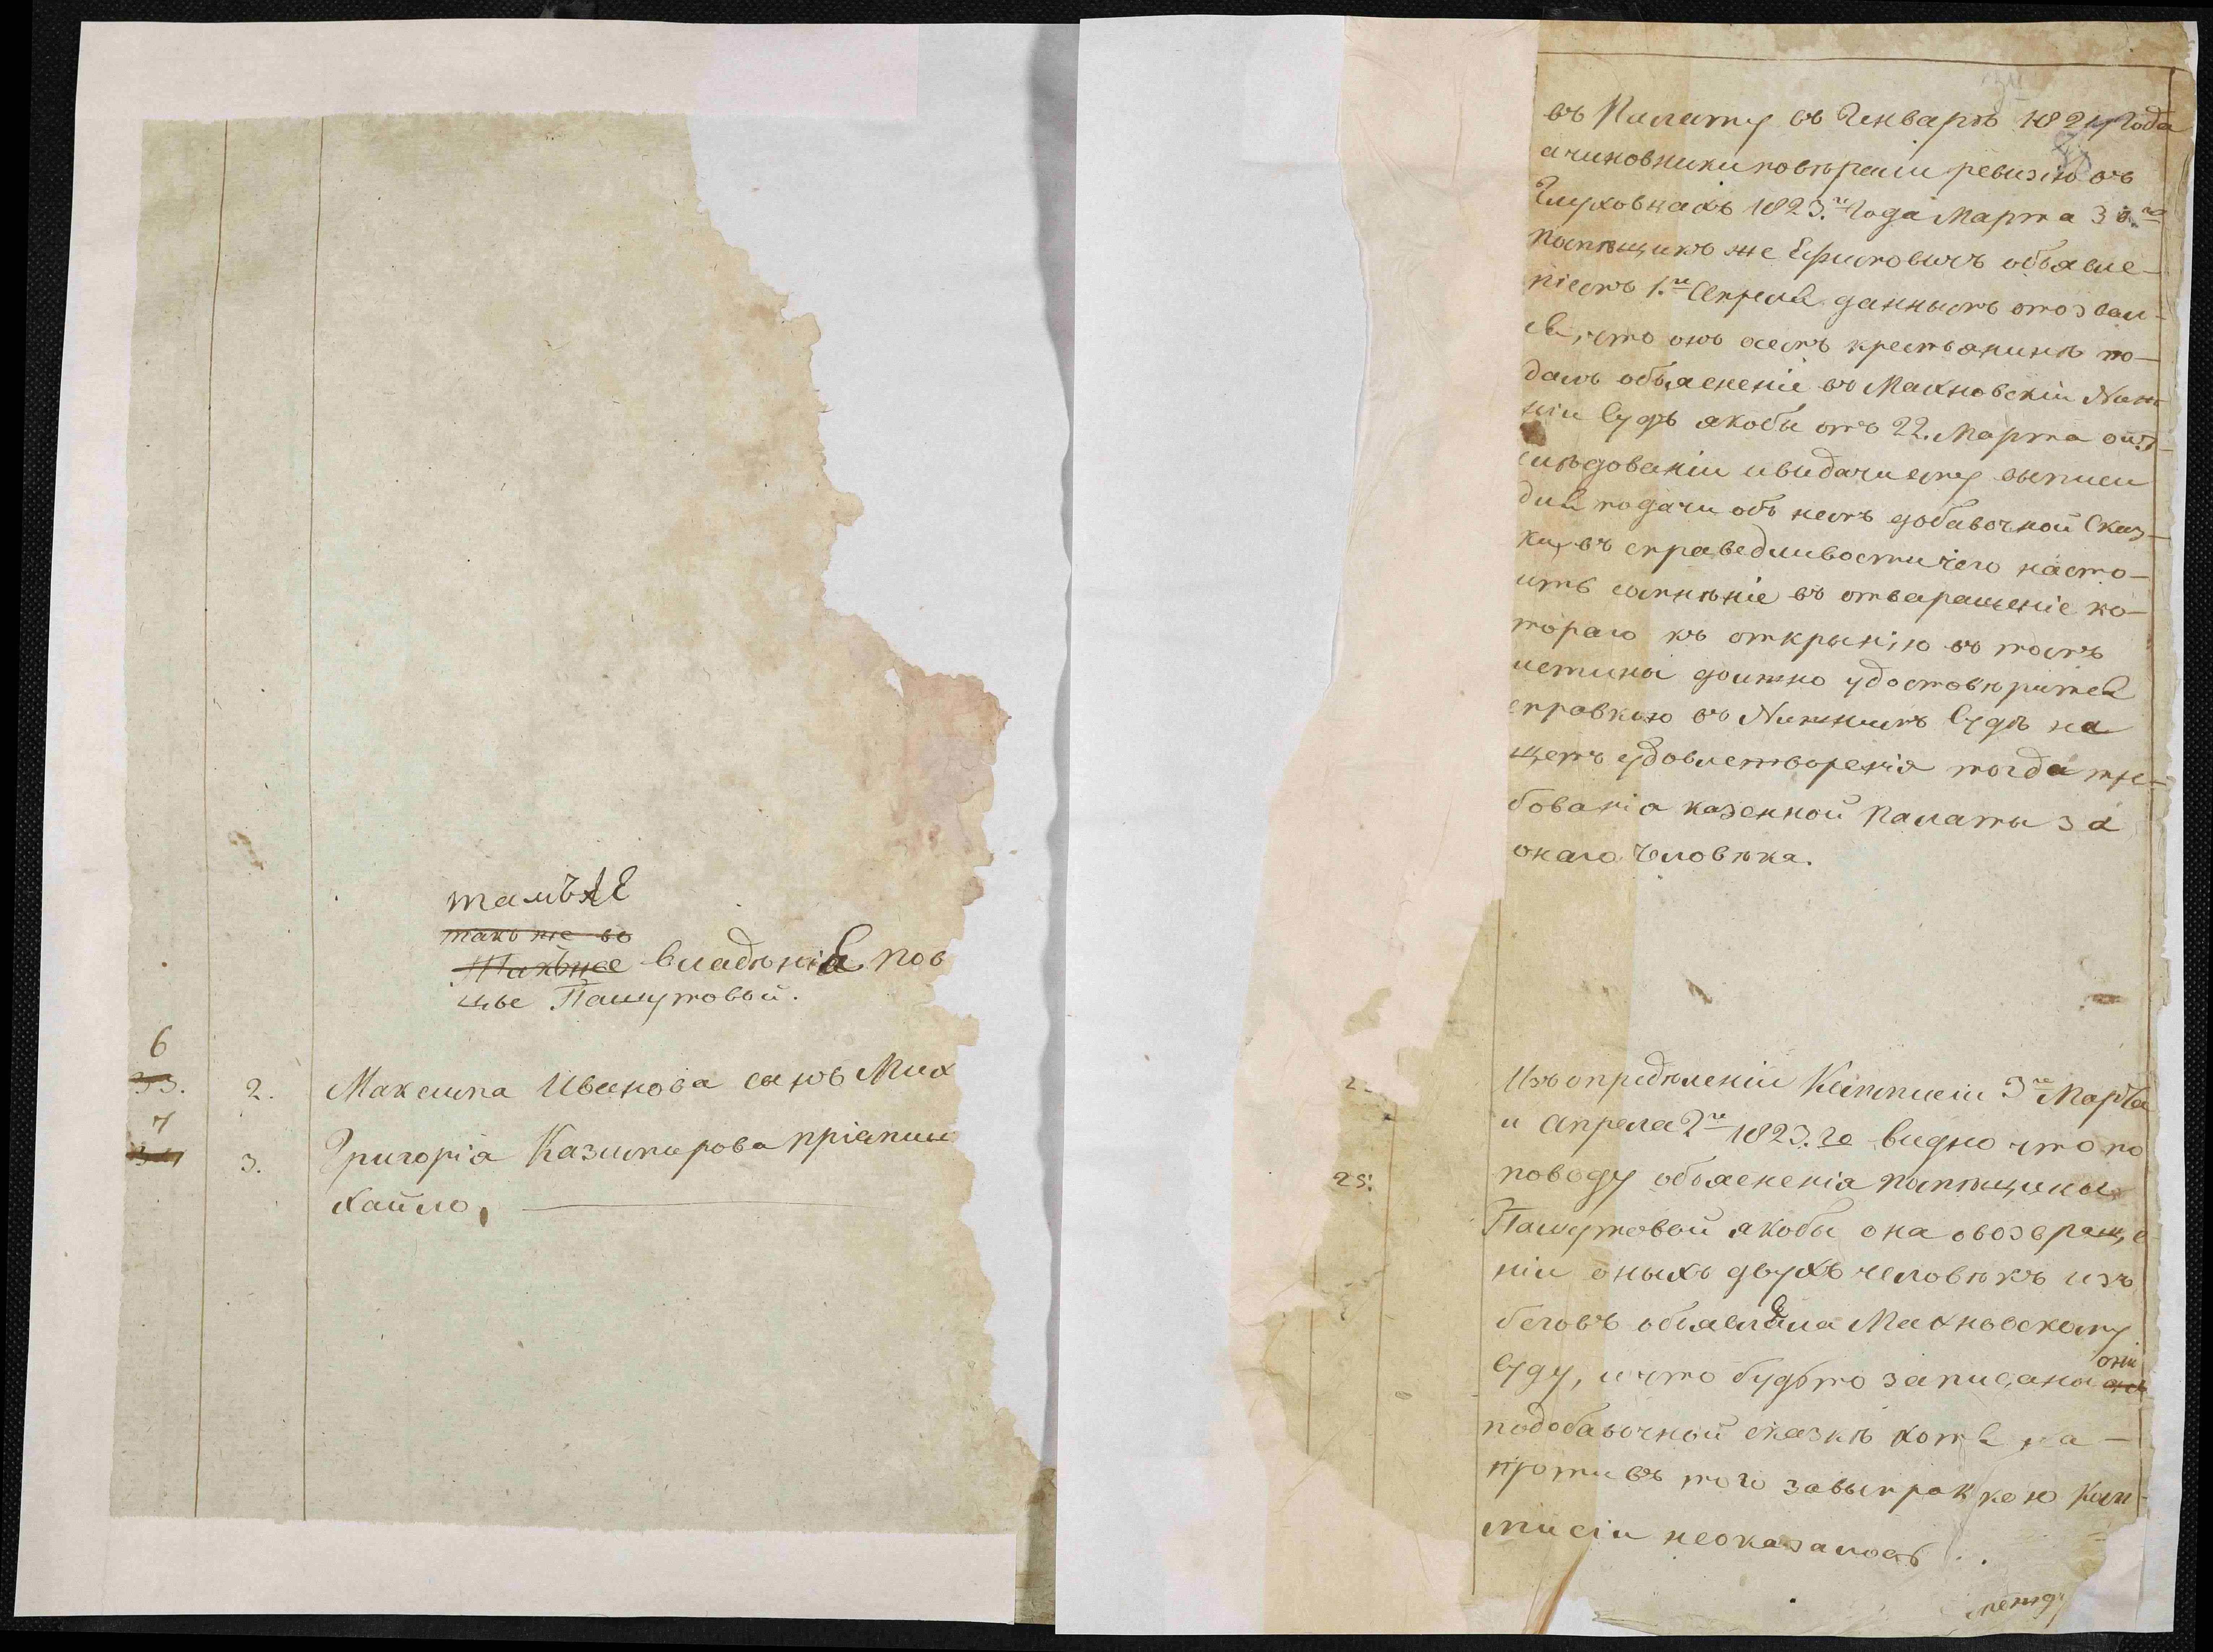 тамъже
такъ же во
Также владѣнія пов
щье Пашутовый.
6
33. 2. Максима Иванова сынъ Мих
7
34 3. Григорія Казимирова пріапши
хайло,
въ Палату въ Генварѣ 1821 года
а чиновники повѣряли ревизію въ
Глуховцахъ 1823.го года Марта 30.го
помѣщикъ же объявле-
ніемъ 1.го Апреля даннымъ отозвал-
ся, что онъ осемъ крестьянинѣ по-
далъ объясненіе въ Махновскій Ниж
ній Судъ якобы отъ 22. Марта
слѣдованіи и видачи ему выписи
для подачи объ немъ добавочной Сказ-
ки, въ справедливости чего насто-
итъ сомнѣніе въ отвращеніе ко-
тораго къ открытію въ томъ
истины должно удостовѣрится
справкою въ Нижнимъ Судѣ на
щетъ удовлетворенія тогда тре-
бованія казенной палаты за
онаго человѣка.
2 Изъ опредѣленій Коммисіи 3го Марта
и апреля 2го 1823. го видно что по
25. поводу объясненія помѣщицы
Пашутовой якобы она о возвраще
ніи оныхъ двухъ человѣкъ изъ
беговъ объявляла Махновскому
они
Суду, и что будьто записаны
по добавочной сказкѣ хотя на-
противъ того за выправкою Ком-
мисіи не оказалось..